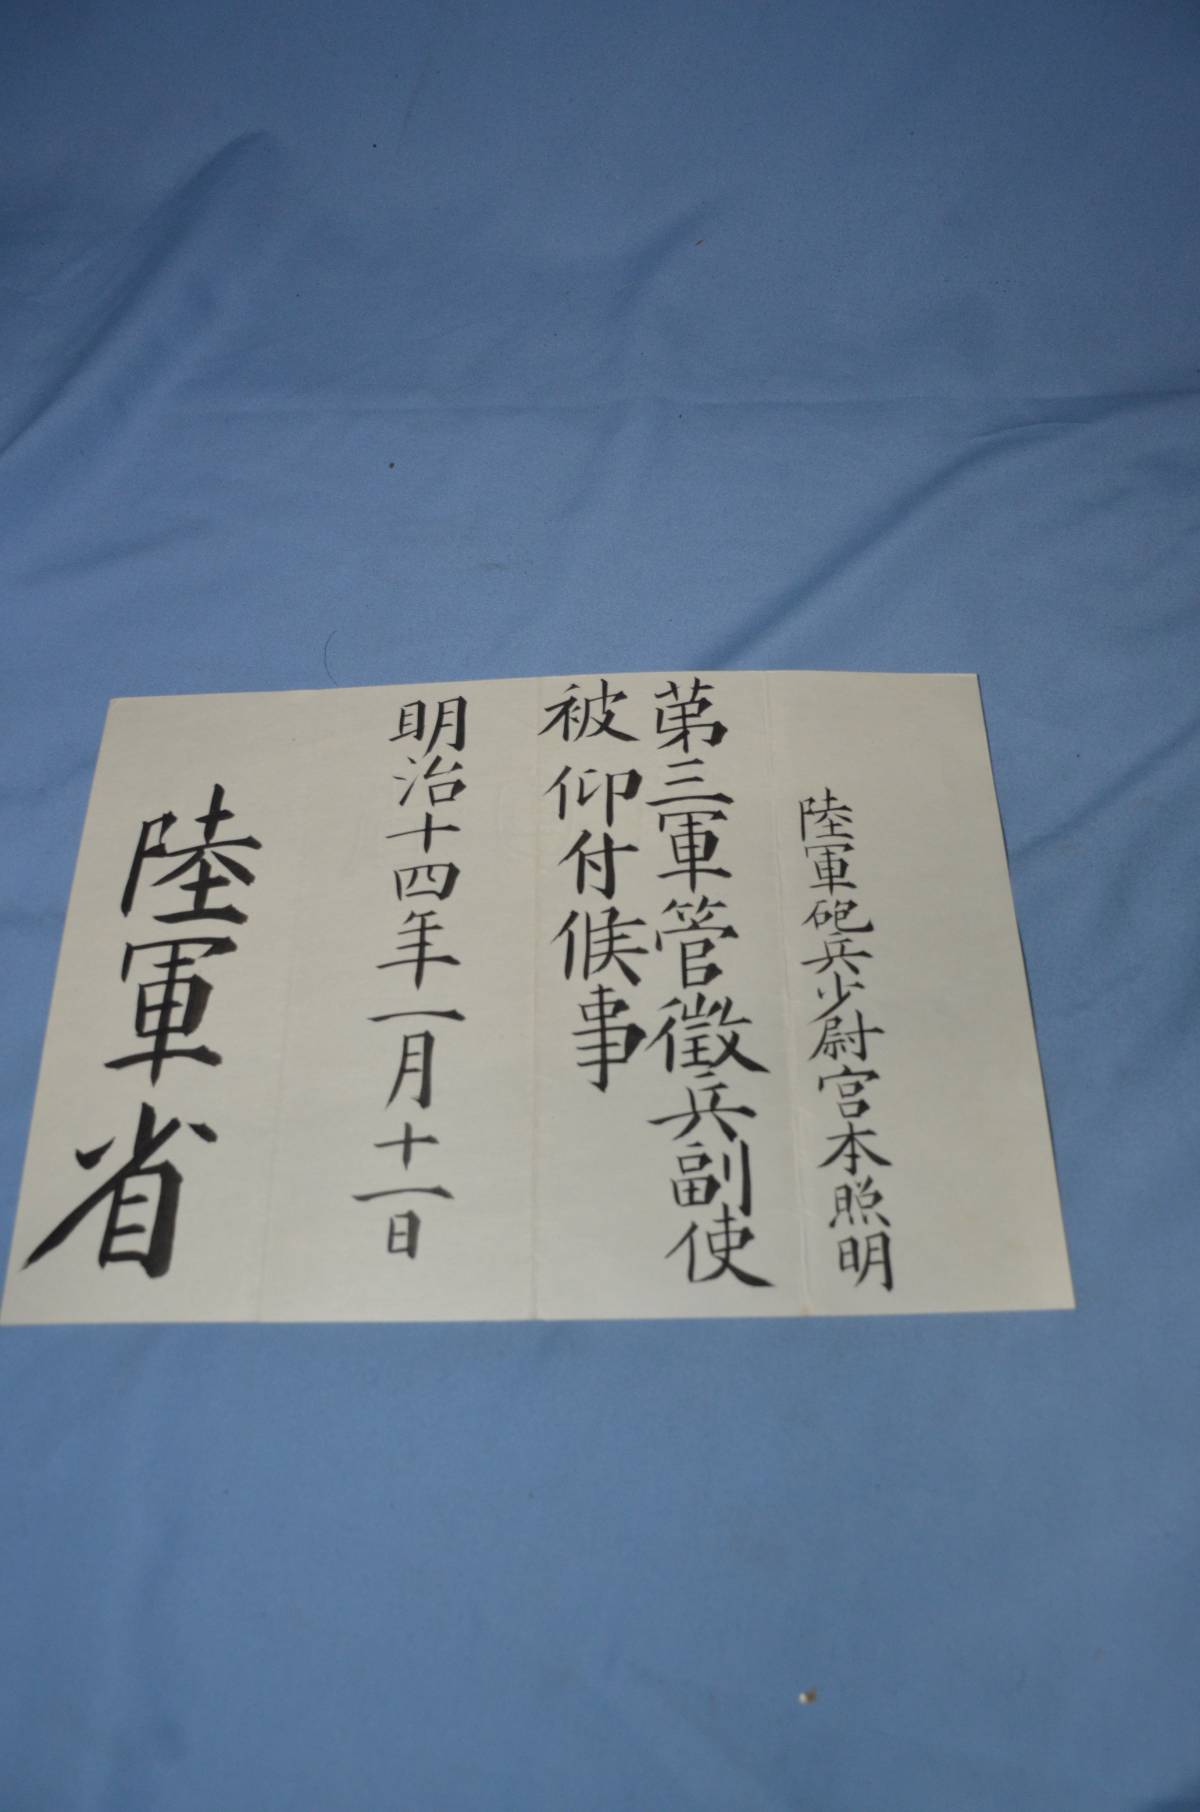 陸軍砲兵少尉宮本照明
第三軍管徴兵副使
被仰付候事
明治十四年一月十一日
陸軍省